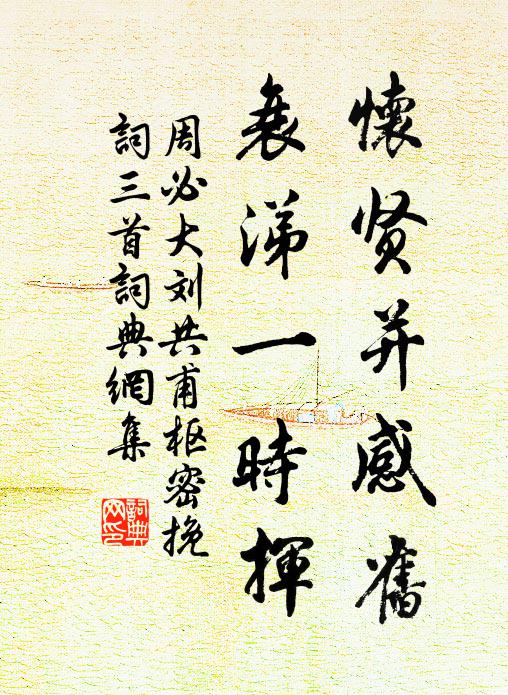 懷贤并感舊
衰涕一時揮
周必大刘共甫枢密挽
詞三首詞典網集
詞典网印